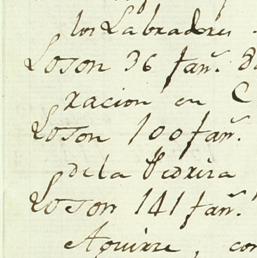 los Labradores
Loson 36 fan.
racion en C
Loson 100 fan.
de la Pedrira
Loson 141 fan.
Aguirre, con